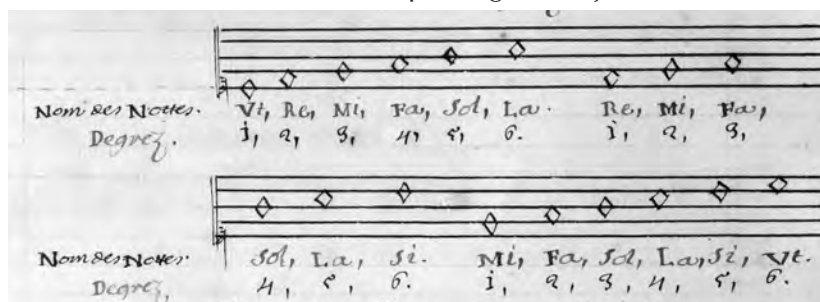 Nom des Nottes. Vt, Re, Mi, Fa, Sol, La. Re, Mi, Fa,
Degrez. 1, 2, 3, 4, 5, 6. 1, 2, 3,
Nom des Nottes. Sol, La, Si. Mi, Fa, Sol, La, Si, Vt.
Degrez, 4, 5, 6. 1, 2, 3, 4, 5, 6.